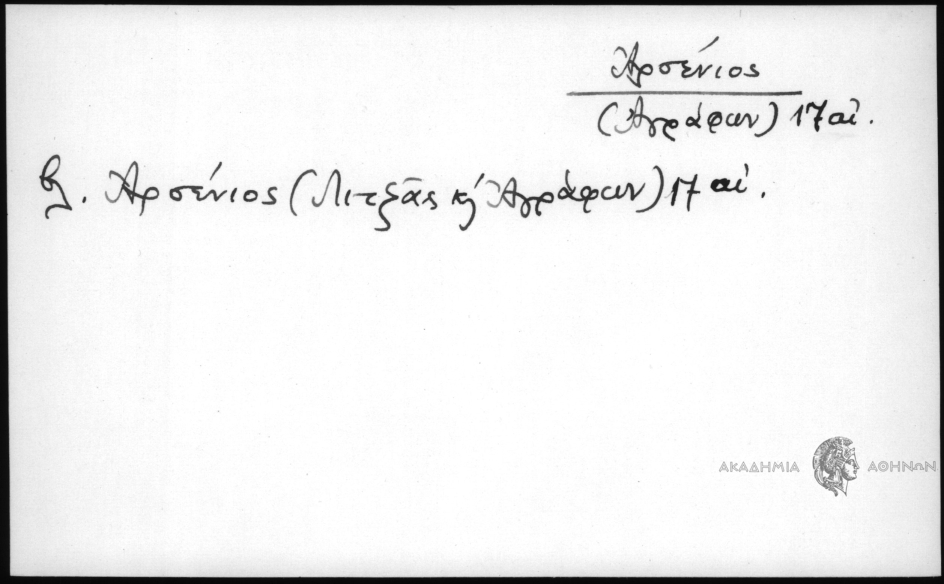 Ἀρσένιος
(Ἀγράφων) 17 αἰ.
βλ. Ἀρσένιος (Λιτζᾶς κ' Ἀγράφων) 17 αἰ.
ΑΚΑΔΗΜΙΑ ΑΘΗΝΩΝ